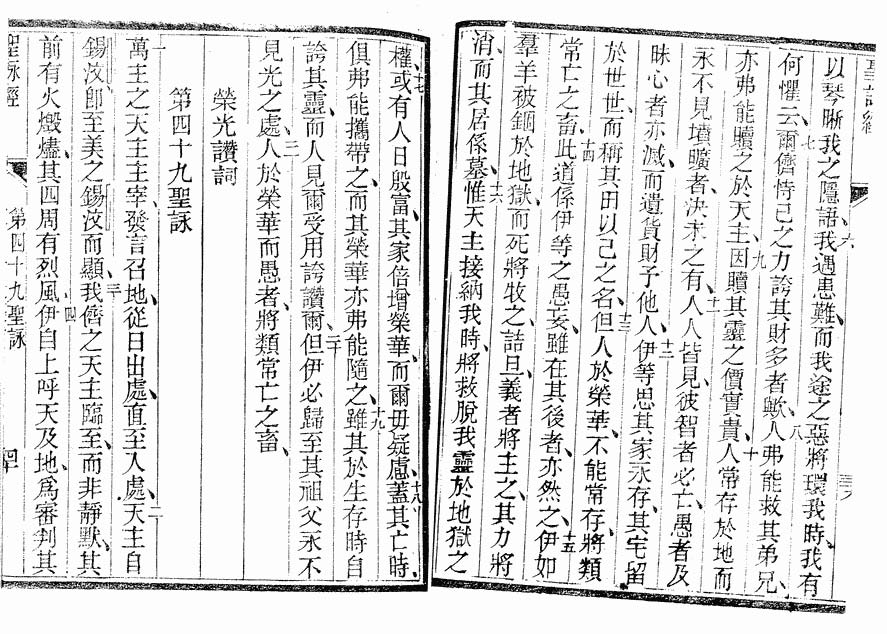 以琴晰我之隱語、六我遇患難而我途之惡將環我時、我有
何懼、七云爾儕恃己之力誇其財多者歟、八人弗能救其弟兄、
亦弗能贖之於天主、九因贖其靈之價實貴、十人常存於地而
永不見墳壙者、決未之有、十一人人皆見彼智者必亡、愚者及
昧心者亦滅、而遺貨財予他人、十二伊等思其家永存、其宅留
於世世、而稱其田以己之名、十三但人於榮華、不能常存、將類
常亡之畜、十四此道係伊等之愚妄、雖在其後者、亦然之、十五伊如
羣羊被錮於地獄、而死將牧之、詰旦、義者將主之、其力將
消、而其居係墓、十六惟天主接納我時、將救脫我靈於地獄之
權、十七或有人日殷富、其家倍增榮華、而爾毋疑慮、十八蓋其亡時、
俱弗能攜帶之、而其榮華亦弗能隨之、十九雖其於生存時自
誇其靈、而人見爾受用誇讚爾、二十但伊必歸至其祖父永不
見光之處、二一人於榮華而愚者、將類常亡之畜、
榮光讚詞
第四十九聖詠
一萬主之天主主宰、發言召地、從日出處、直至入處、二天主自
錫汶卽至美之錫汶而顯、三我儕之天主臨至、而非靜默、其
前有火燬燼、其四周有烈風、四伊自上呼天及地、爲審判其
聖詠經
第四十九聖詠